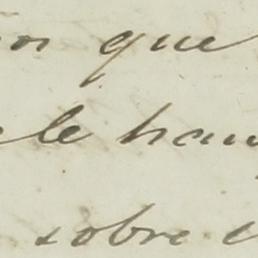 que
le han
sobre